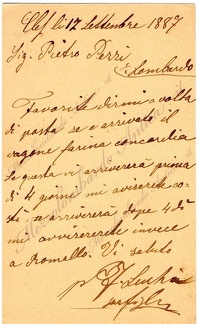 Clef li 12 Settembre 1887
Sig. Pietro Pozzi
Lombardo
Favorite dirmi a volta
di posta se è arrivato il
vagone farina concordia
Se questa vi arriverà prima
di 4 giorni mi aviserete co
sì, se arriverà dopo 4 dì
mi avviserete invece
a Dromello. Vi saluto